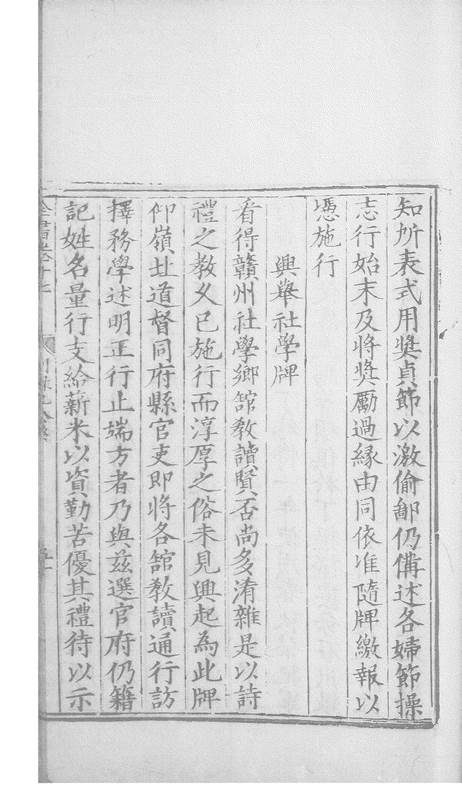 知所表式用奬貞節以激偷鄙仍備述各婦節操
志行始末及將奬勵過緣由同依准隨牌繳報以
憑施行
興舉社學牌
看得贛州社學鄉舘教讀賢否尚多淆雜是以詩
禮之教久已施行而淳厚之俗未見興起為此牌
仰嶺北道督同府縣官吏即將各舘教讀通行訪
擇務學述明正行止端方者乃與兹選官府仍籍
記姓名量行支給薪米以資勤苦優其禮待以示
全書卷十七